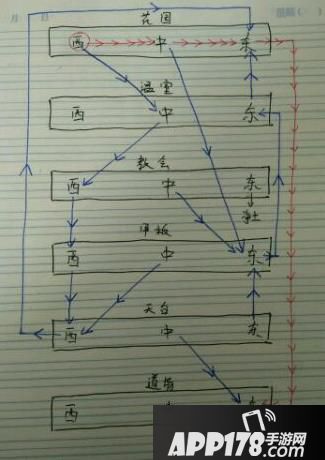 月 日
花园
西 中 东
温室
西 中 东
教会
西 中 东
甲板
西 中 东
天台
西 中 东
道场
西
APP178手游网